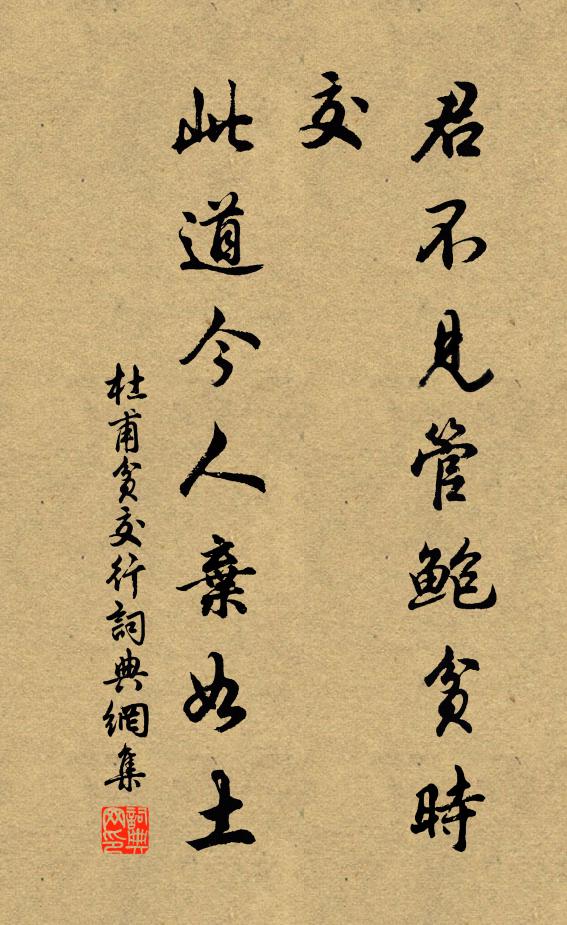 君不見管鮑貧時
交
此道今人棄如土
杜甫貧交行詞典網集
詞典網印